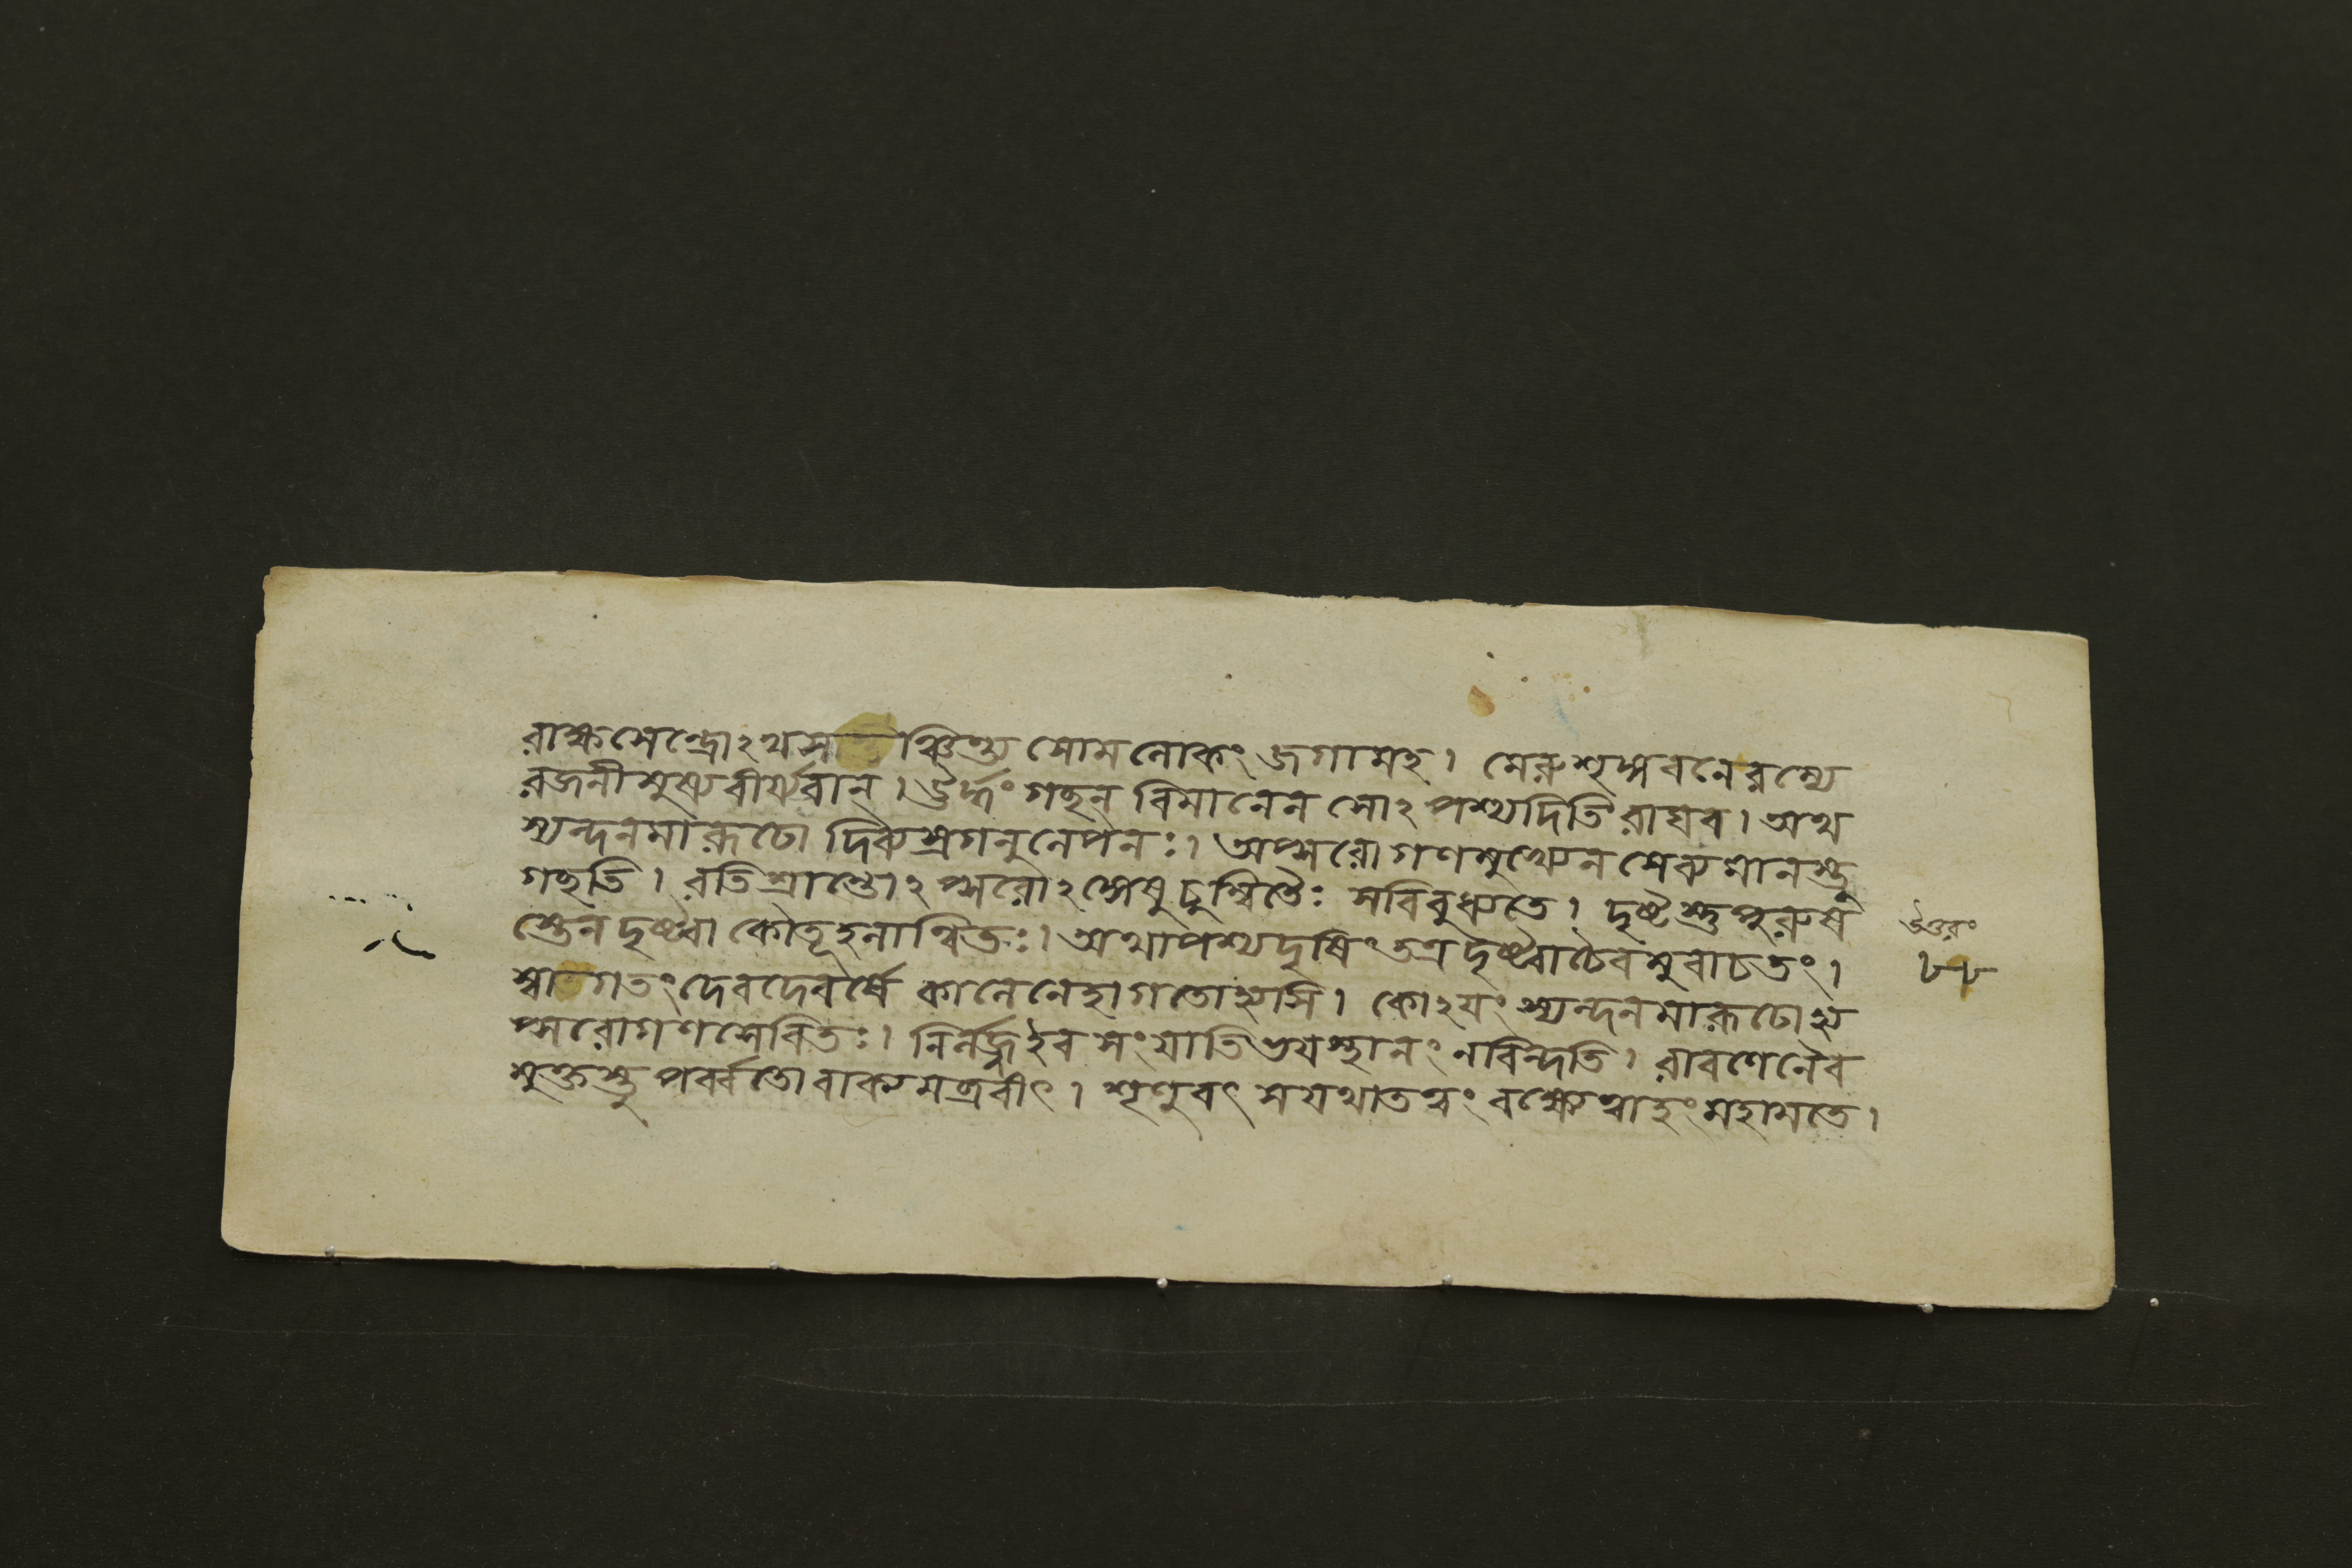 রাক্ষসেন্দ্রোঽথ সঞ্চিন্ত্য সোমলোকং জগামহ। মেরুশৃঙ্গবনে রম্যে
রজনীমুষ্য বীর্যবান্। ঊর্দ্ধং গচ্ছন্ বিমানেন সোঽপশ্যদিতি রাঘব। অথ
স্যন্দনমারূঢো দিব্যস্রগনুলেপনঃ। অপ্সরোগণমুখ্যেন সেব্যমানস্তু
গচ্ছতি। রতিশ্রান্তোঽপ্সরোঽঙ্গেষু চুম্বিতৈঃ স বিবুধ্যতে। দৃষ্টস্তু পুরুষ
স্তেন দৃষ্ট্বা কৌতূহলান্বিতঃ। অথাপশ্যদৃষিং তত্র দৃষ্ট্বা চৈবমুবাচ তং।
উত্তরং
৮৮
স্বাগতং দেবদেবর্ষে কালেনেহাগতোহ্যসি। কোঽযং স্যন্দনমারূঢোহ্য
প্সরোগণসেবিতঃ। নির্লজ্জ ইব সংযাতি ভযস্থানং ন বিন্দতি। রাবণেনৈব
মুক্তস্তু পর্ব্বতো বাক্যমব্রবীৎ। শৃণু বৎস যথাতত্ত্বং বক্ষ্যে ত্বাহং মহামতে।